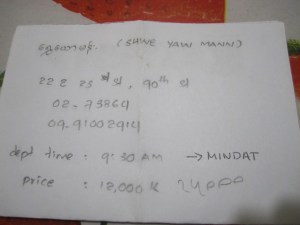 ရွှေယောမန်း (SHINE YAW MANN)
22 ၉ 23 st st, 90th st
02-73864
09-91002914
dept time : 9:30 AM → MINDAT
price : 12,000 k 24000